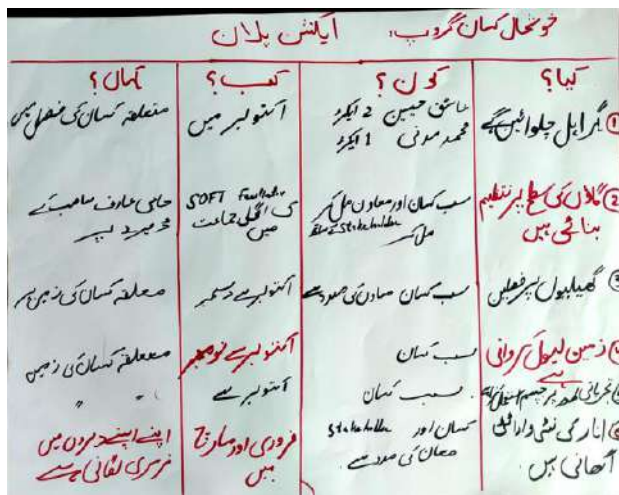 خوشحال کسان گروپ، ایکشن پلان
کیا؟ کون؟ کب؟ کہاں؟
① ٹرائل چلوائیں گے
عاشق حسین 2 ایکڑ
محمد مدنی 1 ایکڑ
اکتوبر میں
متعلقہ کسان کی فصل میں
② گاؤں کی سطح پر تنظیم
بنانی ہیں
سب کسان اور معاون مل کر
Stakeholder
مل کر
SOFT
کی اگلی جماعت
میں
حاجی عارف صاحب کے
ڈیرے پر
③ کھیلیوں پر فصلیں
سب کسان معاون کی مدد سے
اکتوبر سے دسمبر
متعلقہ کسان کی زمین پر
زمین لیول کروانی
ہے
سب کسان
اکتوبر سے نومبر
متعلقہ کسان کی زمین
سب کسان
اکتوبر سے
" "
انار کی
اٹھانی ہیں
کسان اور Stakeholder
معاون کی مدد سے
فروری اور مارچ
میں
اپنے اپنے ڈیروں میں
نرسری لگانی ہے